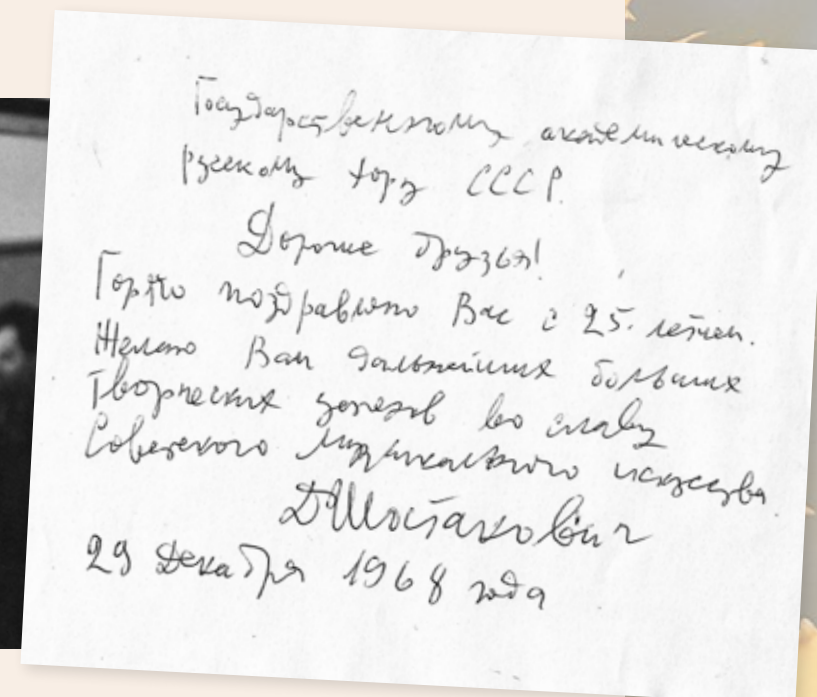 Государственному академическому
русскому хору СССР.
Дорогие друзья!
Горячо поздравляю Вас с 25-летием.
Желаю Вам дальнейших больших
творческих успехов во славу
Советского музыкального искусства
ДШостакович
29 декабря 1968 года